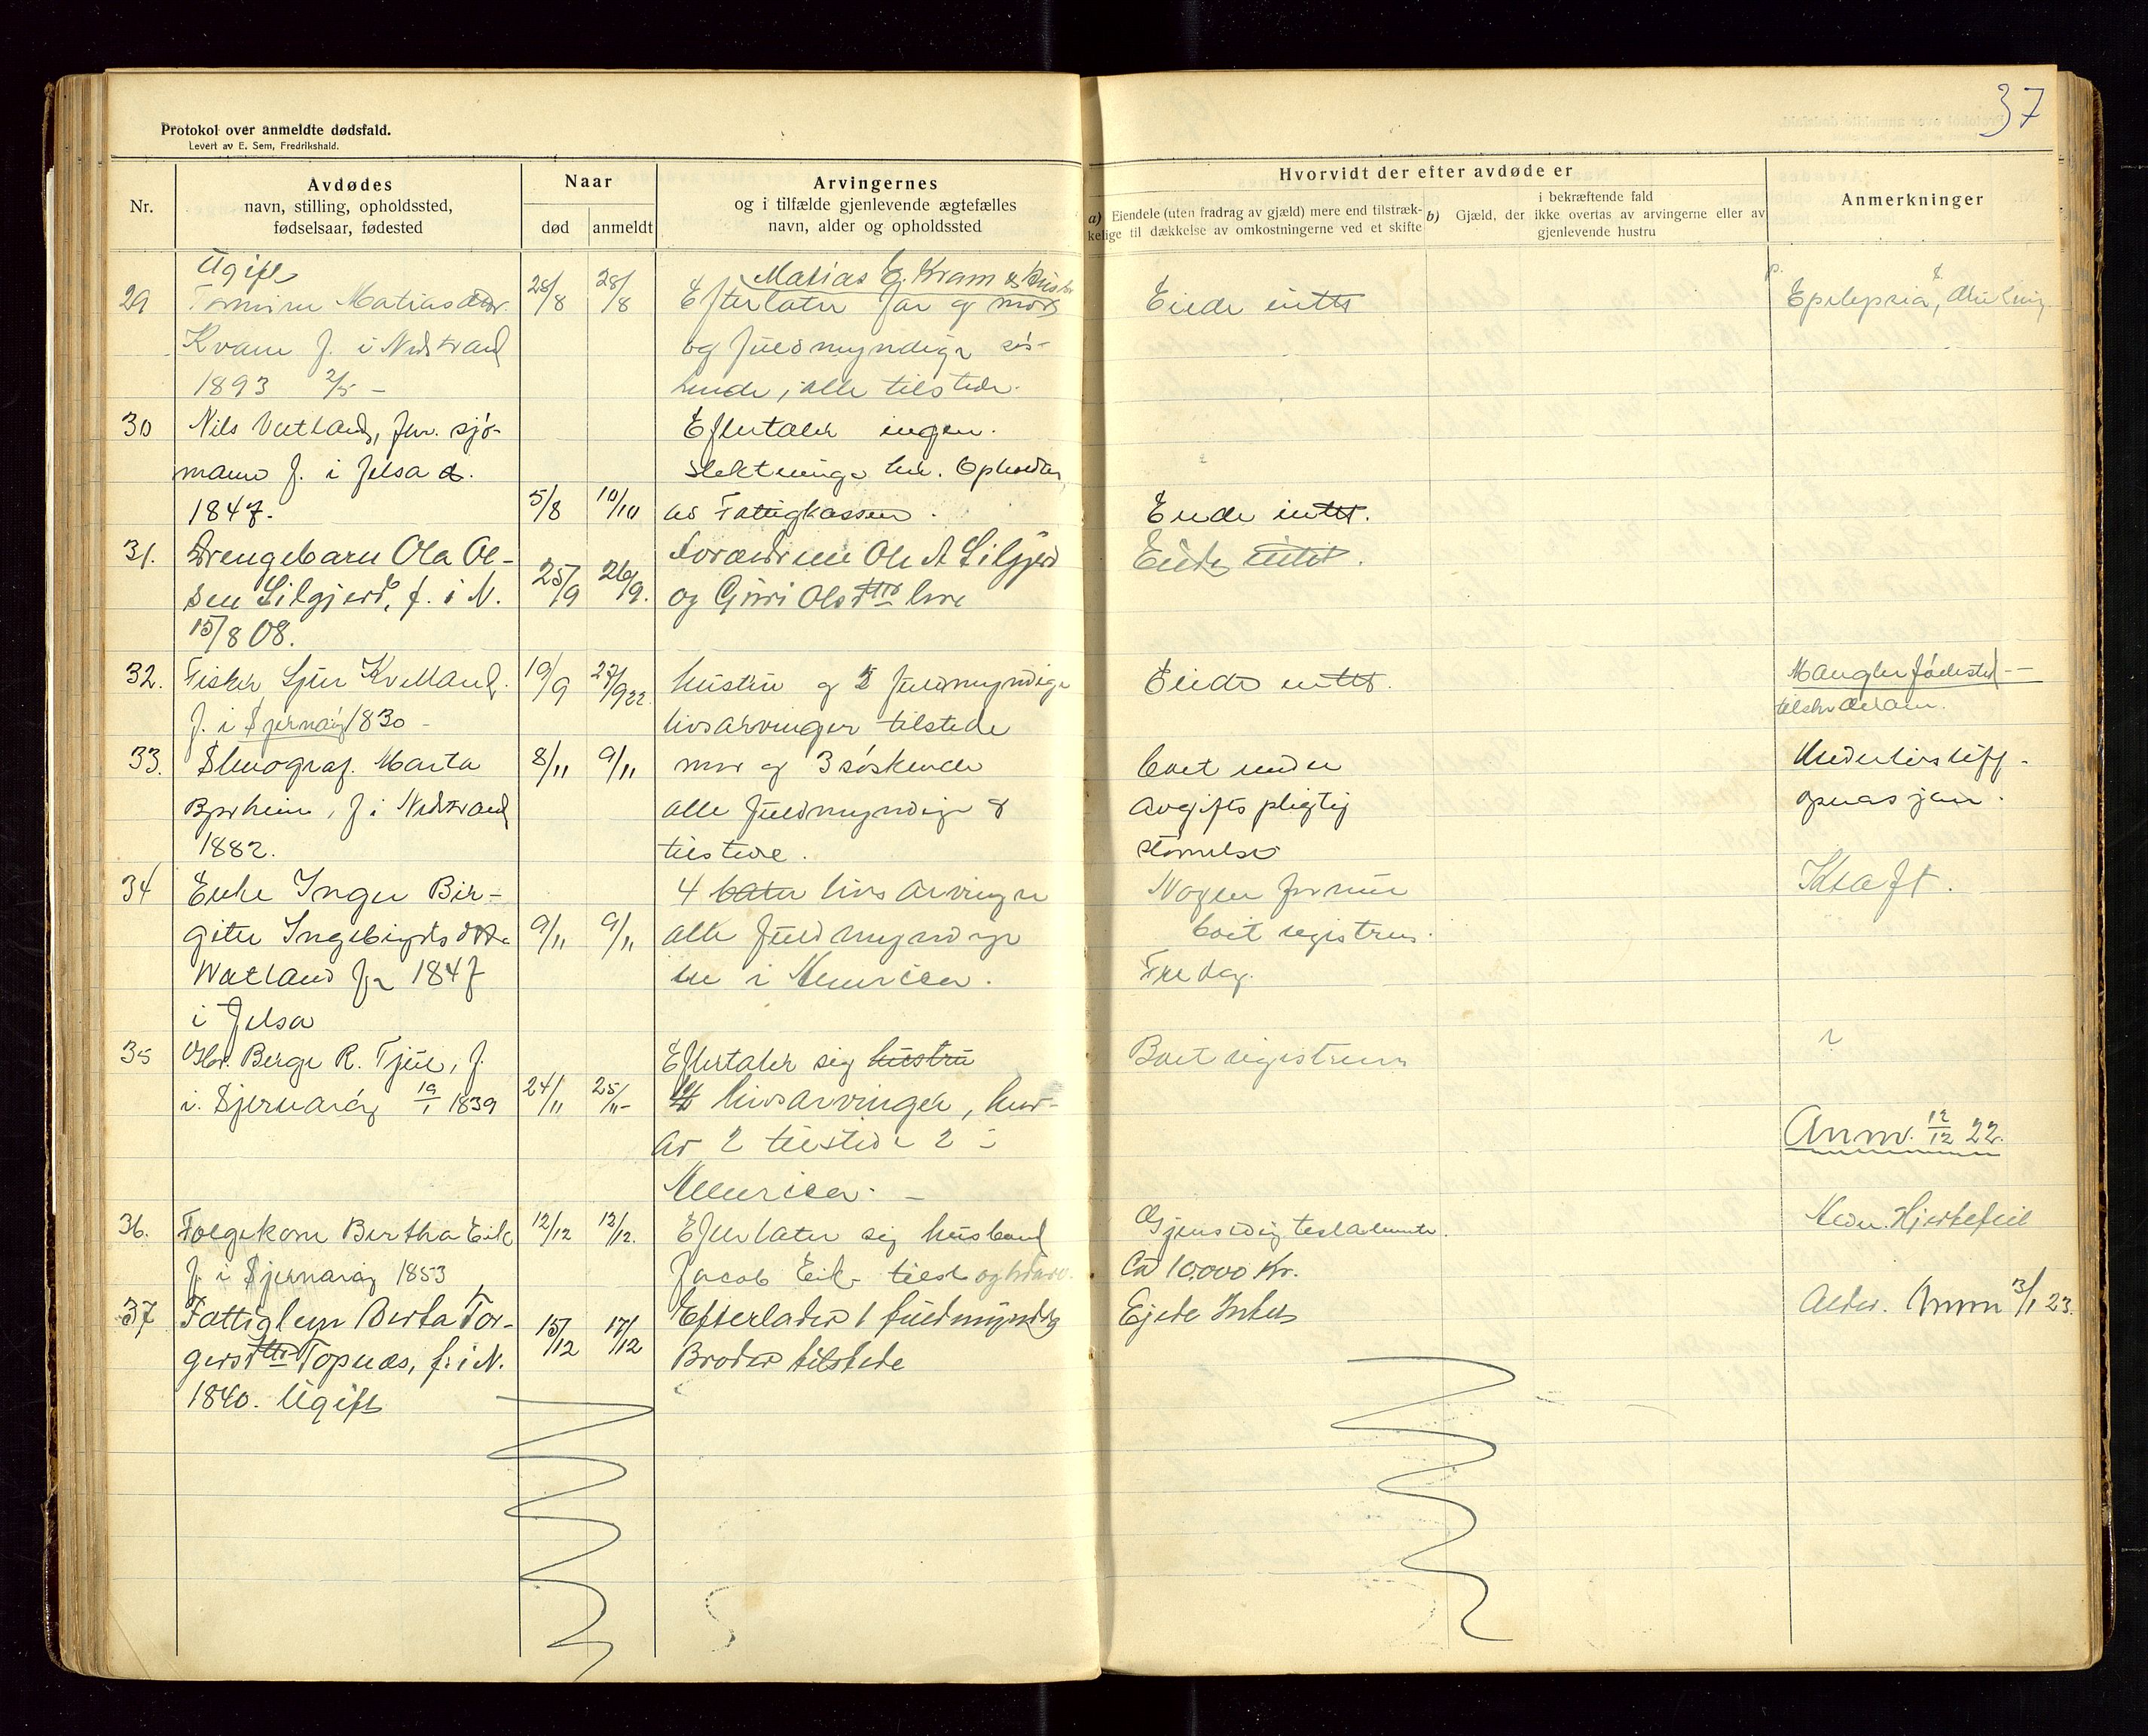 37
Protokol over anmeldte dødsfald.
Levert av E. Sem, Fredrikshald.
Nr.
Avdødes
navn, stilling, opholdssted,
fødselsaar, fødested
Naar
død
anmeldt
Arvingernes
og i tilfælde gjenlevende ægtefælles
navn, alder og opholdssted
Hvorvidt der efter avdøde er
a) Eiendele (uten fradrag av gjæld) mere end tilstræk-
kelige til dækkelse av omkostningerne ved et skifte
i bekræftende fald
b) Gjæld, der ikke overtas av arvingerne eller av
gjenlevende hustru
Anmerkninger
Ugift
29 Matiasdtr. 28/8 28/8
Matias E. Kvam
Efterlater far og mor
Eiede intet
Epilepsia,
Kvam f. i Nedstrand
og fuldmyndige søs-
1893 2/5 -
kende, alle tilstede.
30 Nils Vatland, fhv. sjø-
Efterlater ingen.
mand f. i Jelsa
slektninge her.
1847. 5/8 10/10
av Fattigkassen.
Eiede intet.
31. Drengebarn Ola Ol-
Forældrene Ole A Lilgjerd
Eiede intet.
sen Lilgjerd, f. i N. 25/9 26/9.
og Guri Olsdtr
15/8 08.
32. Fisker Sjur Kvelland. 19/9 27/9 22.
hustru og 2 fuldmyndige
Eiede intet.
Mangler fødested
f. i Sjernarøy 1830 -
livsarvinger tilstede
33. Marta 8/11 9/11
mor og 3 søskende
boet under
Underlivs
f. i Nedstrand
alle fuldmyndige &
avgiftspligtig
1882.
tilstede.
størrelse
34 Enke Inger Bir-
4 livsarvinger
Nogen formue
Kræft.
gitte Ingebrigtsdtr 9/11 9/11
alle fuldmyndige
boet registreres.
Watland f. 1847
en i Amerika.
Fredag.
i Jelsa
35 Berge R. Tjul, f.
Efterlater sig hustru
Boet registreres
i Sjernarøy 19/1 1839 24/11 25/11
4 livsarvinger, hvor-
av 2 tilstede 2 i
Anm. 12/12 22.
Amerika. -
36. Folgekone Bertha Eik 12/12 12/12.
Efterlater sig husband
Gjensidig testamente.
Hjertefeil
f. i Sjernarøy 1853
Jacob Eik
Ca 10.000 Kr.
37 Fattiglem Berta Tor- 15/12 17/12
Efterlader 1 fuldmyndig
Ejede Intet
Alder. Anm 3/1 23.
gersdtr Topnæs, f. i N.
Broder tilstede
1840. Ugift